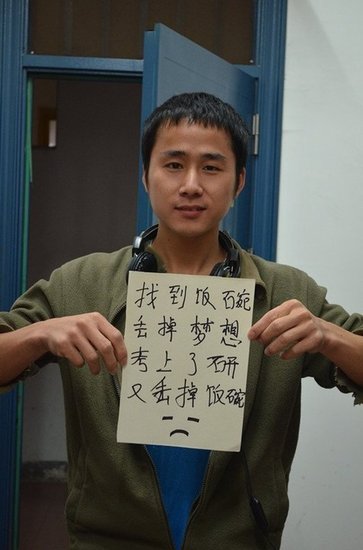 找到饭碗
丢掉梦想
考上了研
又丢掉饭碗